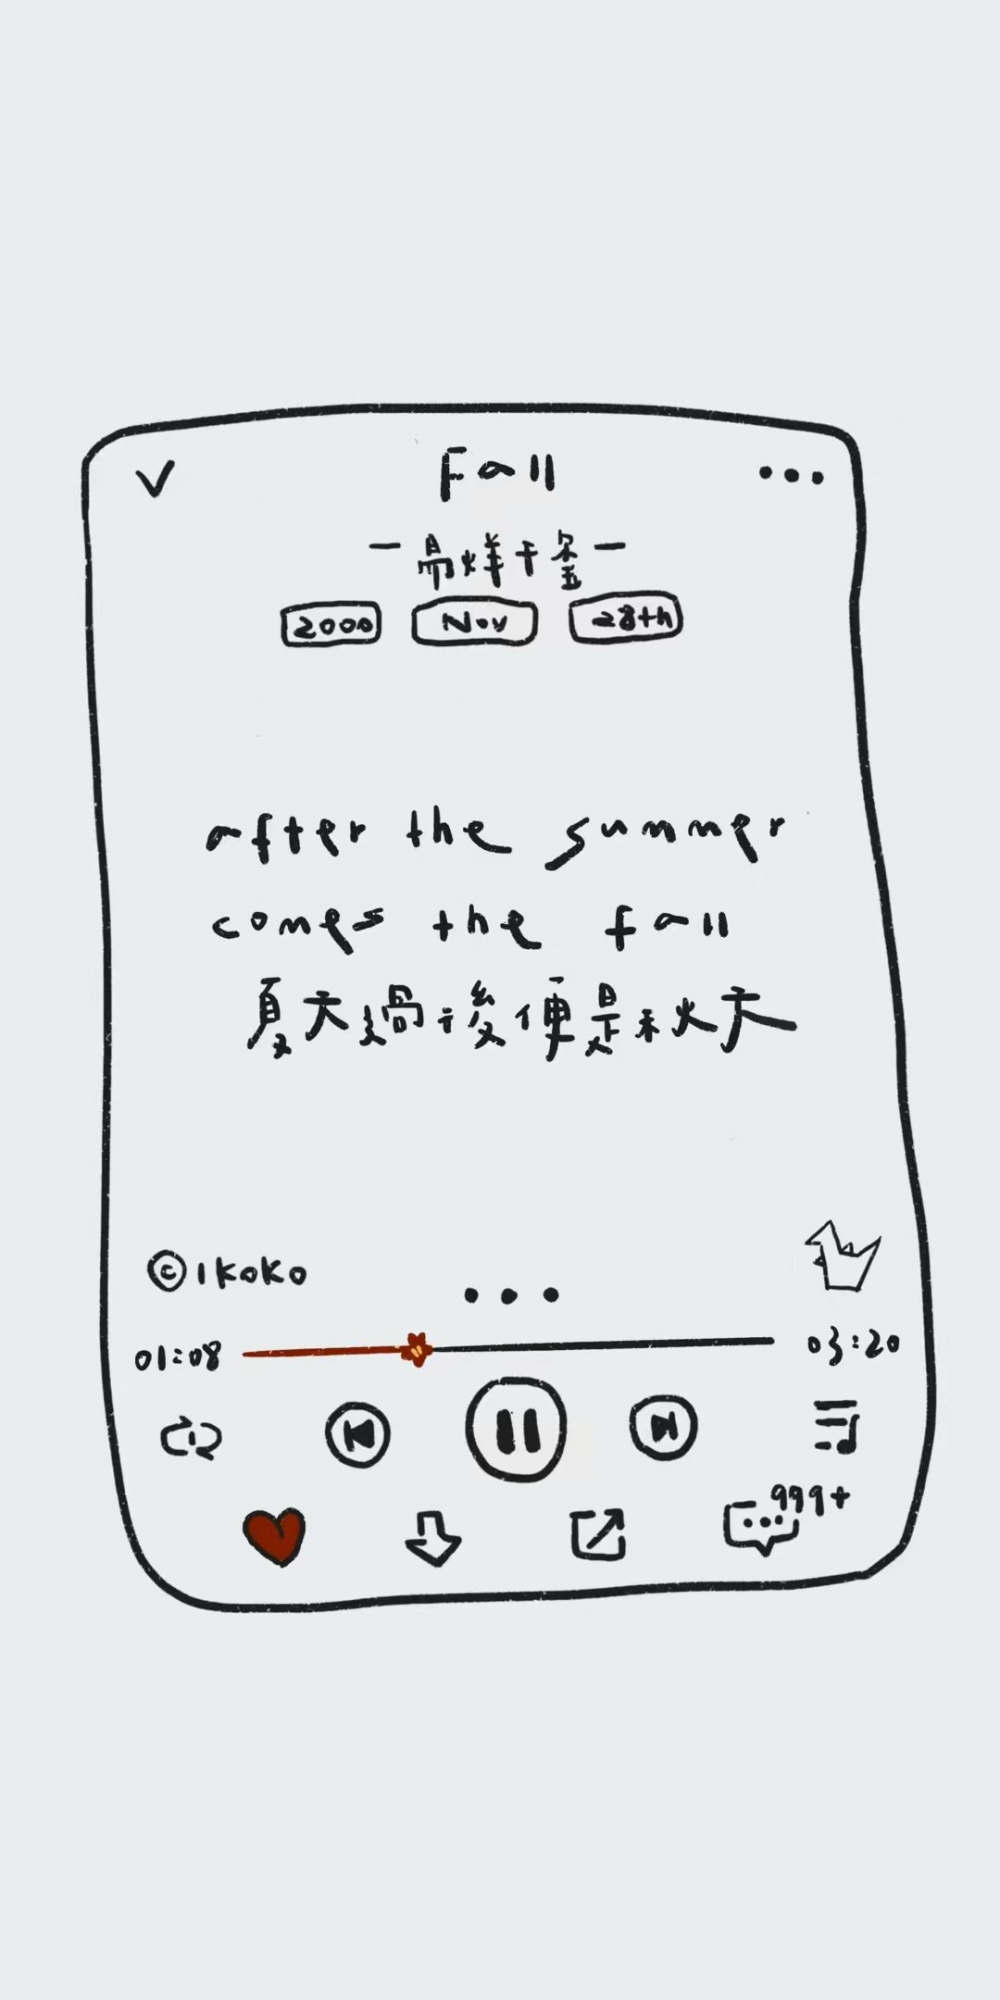 Fall
2000 Nov 28th
after the summer
comes the fall
夏天過後便是秋天
©IKOKO
01:08 03:20
999+